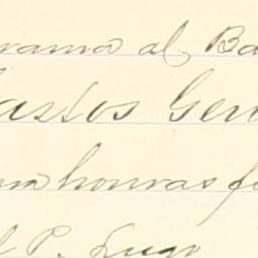 rama al Ba
Gastos Gen
ra honras f
l P. Lugo